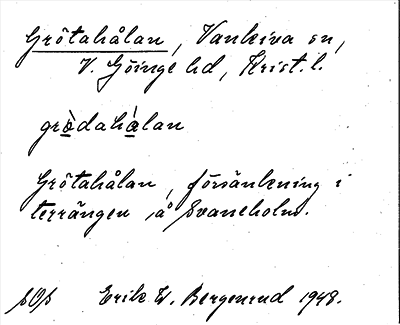 Grötahålan, Vankiva sn,
V. Göinge hd, Krist. l.
gròdahálan
Grötahålan, försänkning i
terrängen å Svaneholm.
Erik W. Bergenrud 1948.